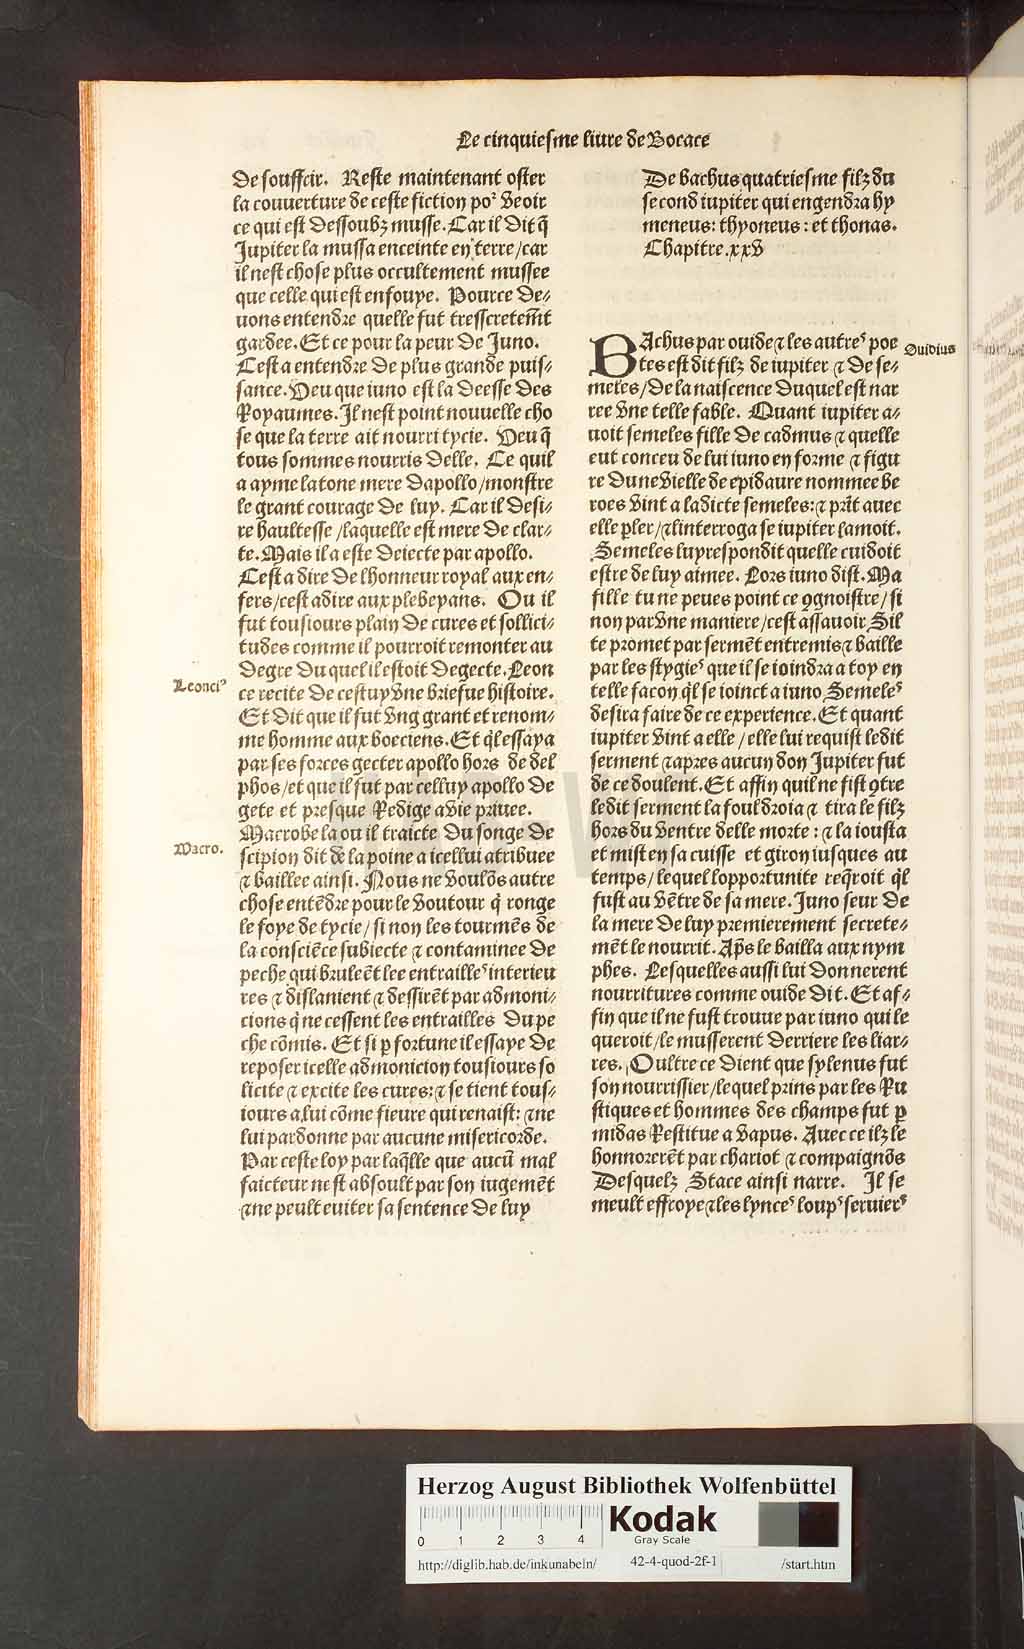 Le cinquiesme liure de Bocace
de souffcir. Reste maintenant oster
la couuerture de ceste fiction poᵘ veoir
ce qui est dessoubz musse. Car il dit q̄
Jupiter la mussa enceinte en terre/car
il nest chose plus occultement mussee
que celle qui est enfouye. Pource de⸗
uons entendre quelle fut tresscretem̄t
gardee. Et ce pour la peur de Juno.
Cest a entendre de plus grande puis⸗
sance. Veu que iuno est la deesse des
Royaumes. Il nest point nouuelle cho
se que la terre ait nourri tycie. Veu q̄
tous sommes nourris delle. Ce quil
a ayme latone mere dapollo/monstre
le grant courage de luy. Car il desi⸗
re haultesse/laquelle est mere de clar⸗
te. Mais il a este deiecte par apollo.
Cest a dire de lhonneur royal aux en⸗
fers/cest adire aux plebeyans. Ou il
fut tousiours plain de cures et sollici⸗
tudes comme il pourroit remonter au
degre du quel il estoit degecte. Leon
Leonciꝰ
ce recite de cestuy vne briefue histoire.
Et dit que il fut vng grant et renom⸗
me homme aux boeciens. Et q̄l essaya
par ses forces gecter apollo hors de del
phos/et que il fut par celluy apollo de
gete et presque Redige a vie priuee.
Macrobe la ou il traicte du songe de
Macro.
scipion dit de la poine a icellui atribuee
⁊ baillee ainsi. Nous ne voulōs autre
chose entēdre pour le voutour q̇ ronge
le foye de tycie/si non les tourmēs de
la consciēce subiecte ⁊ contaminee de
peche qui bruleēt lee entrailleˢ interieu
res ⁊ dislanient ⁊ dessirēt par admoni⸗
cions q̇ ne cessent les entrailles du pe
che cōmis. Et si ꝑ fortune il essaye de
reposer icelle admonicion tousiours so
licite ⁊ excite les cures: ⁊ se tient tous⸗
iours a lui cōme fieure qui renaist: ⁊ ne
lui pardonne par aucune misericorde.
Par ceste loy par laq̄lle que aucū mal
faicteur nest absoult par son iugemēt
⁊ ne peult euiter sa sentence de luy
De bachus quatriesme filz du
second iupiter qui engendra hy
meneus: thyoneus: et thonas.
Chapitre. xxv
BAchus par ouide ⁊ les autreˢ poe
Ouidius
tes est dit filz de iupiter ⁊ de se⸗
meles/de la naiscence duquel est nar
ree vne telle fable. Quant iupiter a⸗
uoit semeles fille de cadmus ⁊ quelle
eut conceu de lui iuno en forme ⁊ figu
re dune vielle de epidaure nommee be
roes vint a ladicte semeles: ⁊ pr̄it auec
elle ꝑler/⁊ linterroga se iupiter lamoit.
Semeles luy respondit quelle cuidoit
estre de luy aimee. Lors iuno dist. Ma
fille tu ne peues point ce ꝯgnoistre/si
non par vne maniere/cest assauoir Sil
te promet par sermēt entremis ⁊ baille
par les stygieˢ que il se ioindra a toy en
telle facon q̄l se ioinct a iuno Semeleˢ
desira faire de ce experience. Et quant
iupiter vint a elle/elle lui requist ledit
serment ⁊ apres aucun don Jupiter fut
de ce doulent. Et affin quil ne fist ꝯtre
ledit serment la fouldroia ⁊ tira le filz
hors du ventre delle morte: ⁊ la iousta
et mist en sa cuisse et giron iusques au
temps/lequel lopportunite req̄roit q̄l
fust au vētre de sa mere. Juno seur de
la mere de luy premierement secrete⸗
mēt le nourrit. Ap̄s le bailla aux nym
phes. Lesquelles aussi lui donnerent
nourritures comme ouide dit. Et af⸗
fin que il ne fust trouue par iuno qui le
queroit/le musserent derriere les liar⸗
res. Oultre ce dient que sylenus fut
son nourrissier/lequel prins par les Ru
stiques et hommes des champs fut ꝑ
midas Restitue a vapus. Auec ce ilz le
honnorerēt par chariot ⁊ compaignōs
Desquelz Stace ainsi narre. Il se
meult effroye ⁊ les lynceˢ loupˢ seruierˢ
Herzog August Bibliothek Wolfenbüttel
0 1 2 3 4
Kodak
Gray Scale
http://diglib.hab.de/inkunabeln/ 42-4-quod-2f-1 /start.htm
HAB-WF